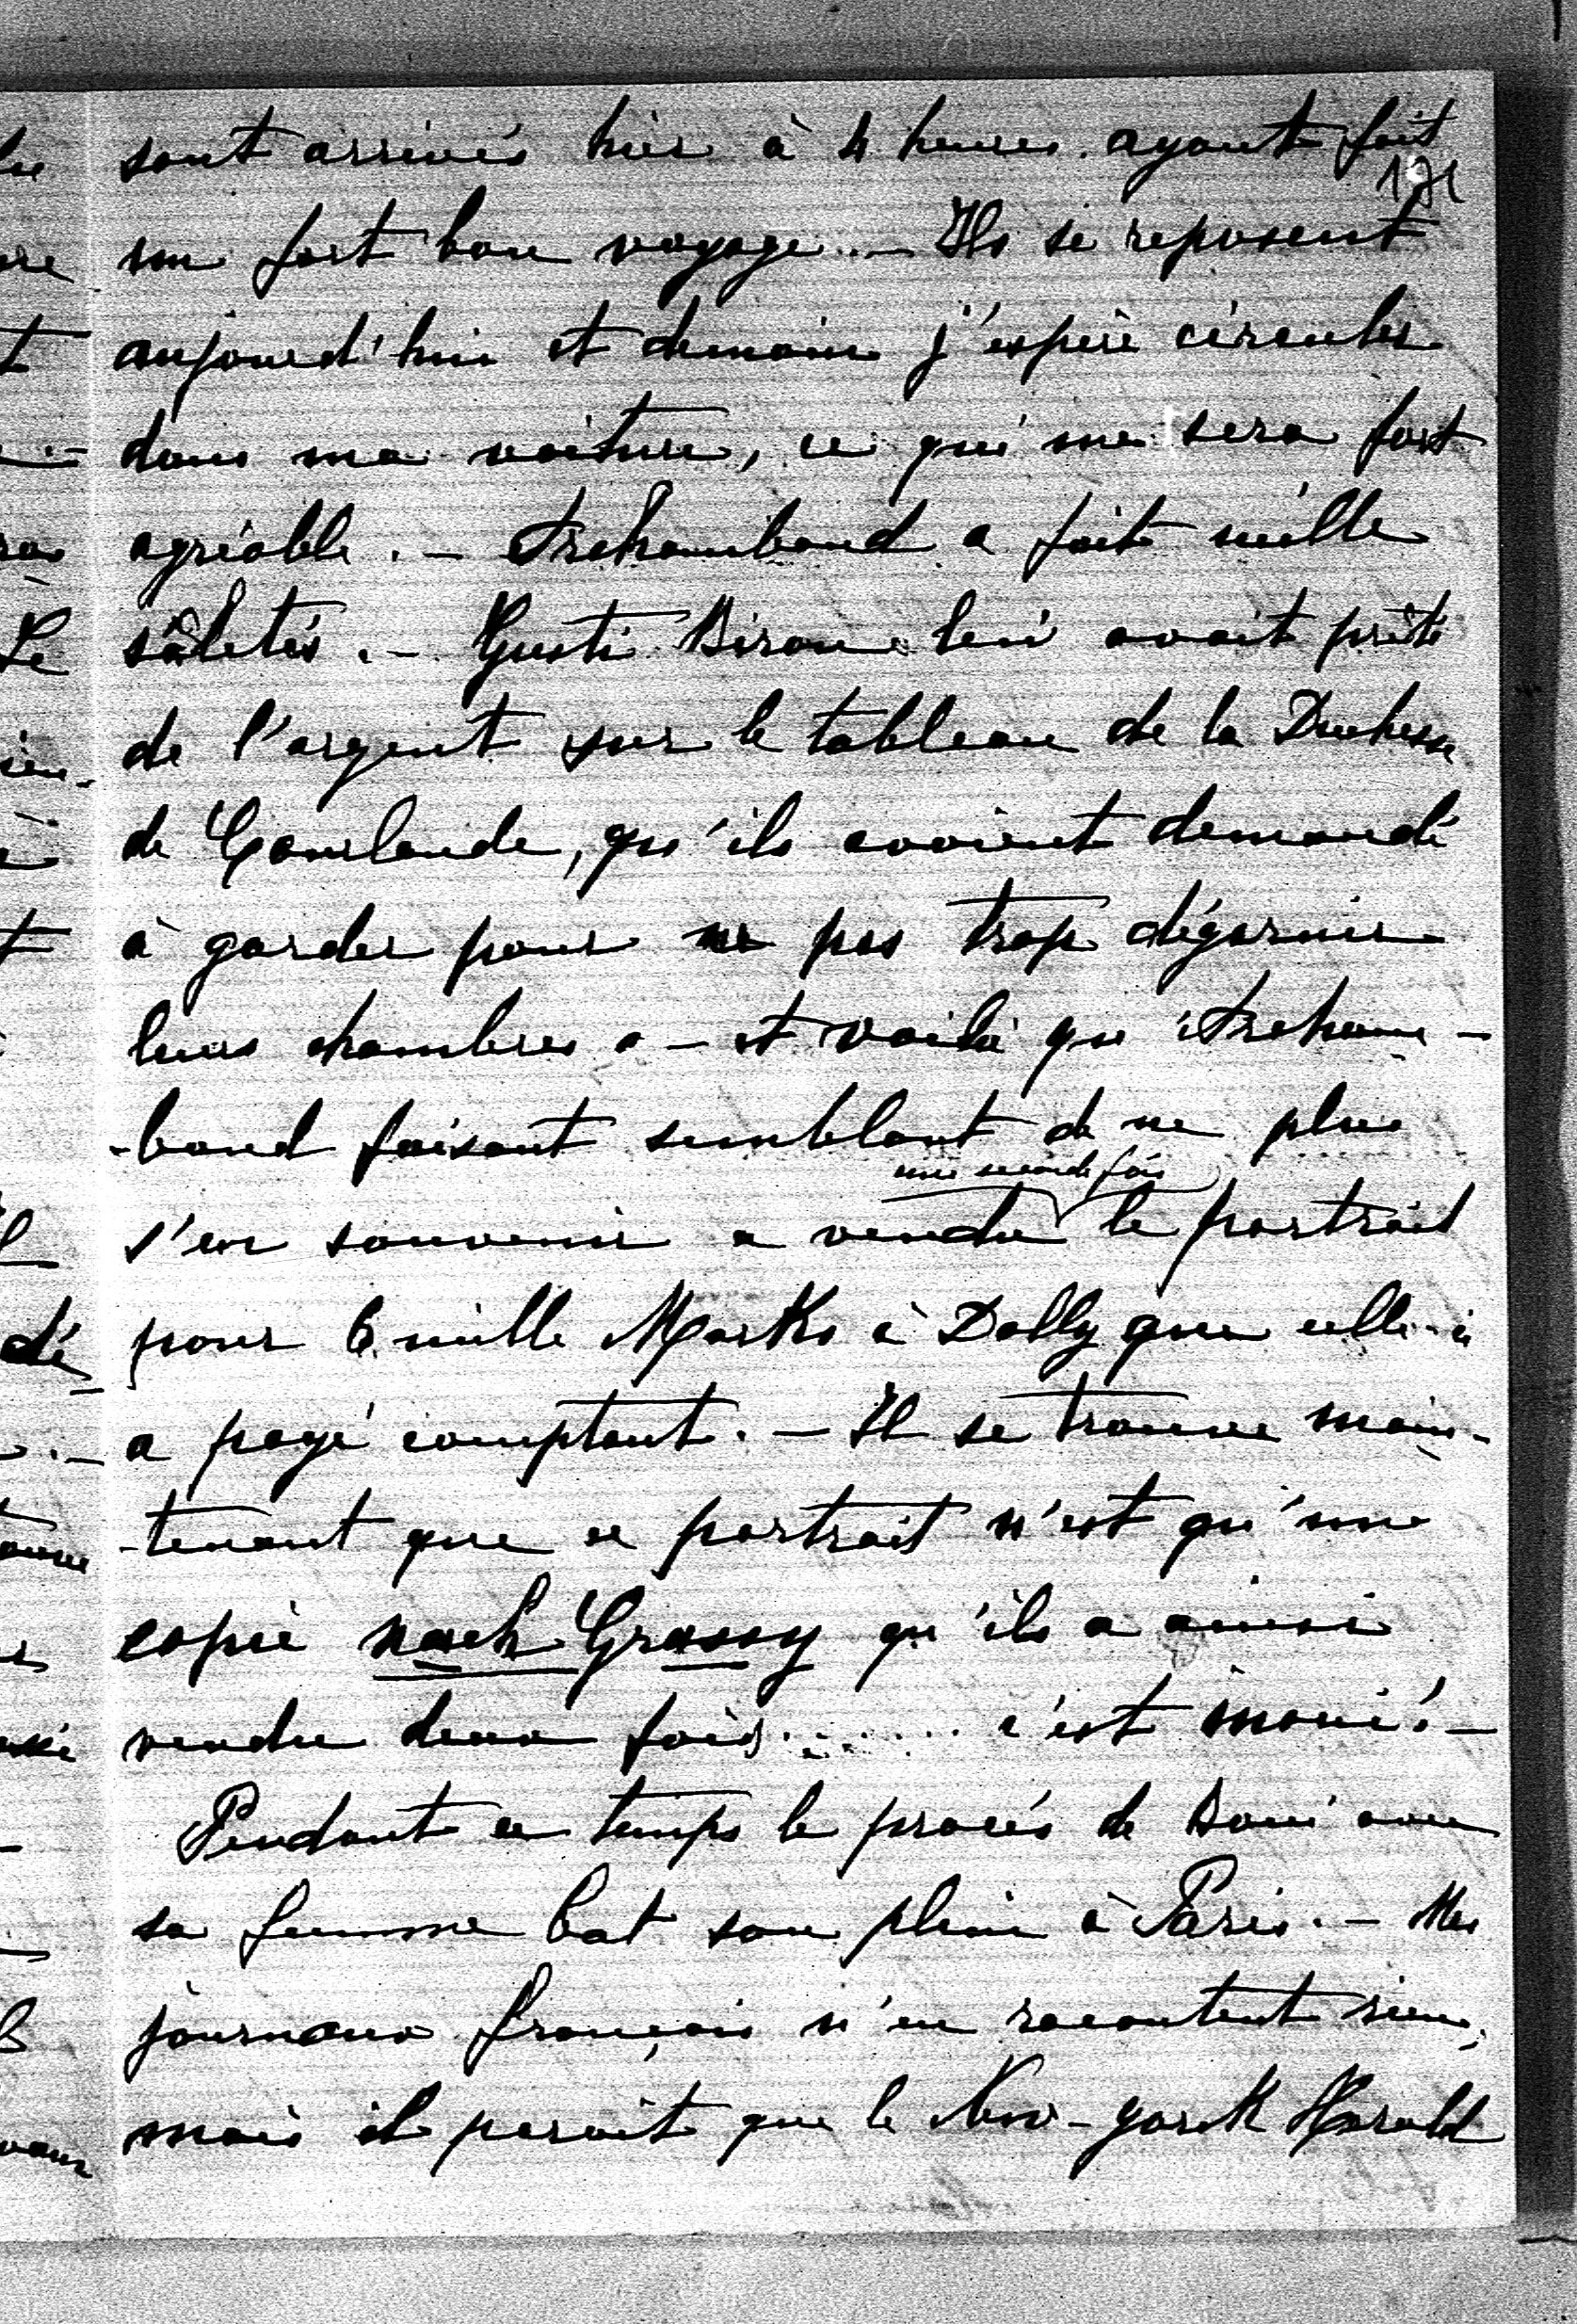 sont arrivés hier à 4 heures ayant fait
171
un fort bon voyage. — Ils se reposent
aujourd'hui et demain j'espère circuler
dans ma voiture, ce qui me sera fort
agréable. — Archambaud a fait mille
sâletés. — Gusti Biron lui avait prêté
de l'argent sur le tableau de la Duchesse
de Courlande, qu'ils avaient demandé
à garder pour ne pas trop dégarnir
leurs chambres. — et voilà qu'Archam-
-baud faisant semblant de ne plus
une seconde fois
s'en souvenir a vendu le portrait
pour 6 mille Marks à Dolly que celle-ci
a payé comptant. — Il se trouve main-
-tenant que ce portrait n'est qu'une
copie nach Grassy qu'ils a ainsi
vendu deux fois...... c'est inouï! —
Pendant ce temps le procès de Boni avec
sa femme bat son plein à Paris. — Mes
journaux français n'en racontent rien,
mais il paraît que le New-York Herald